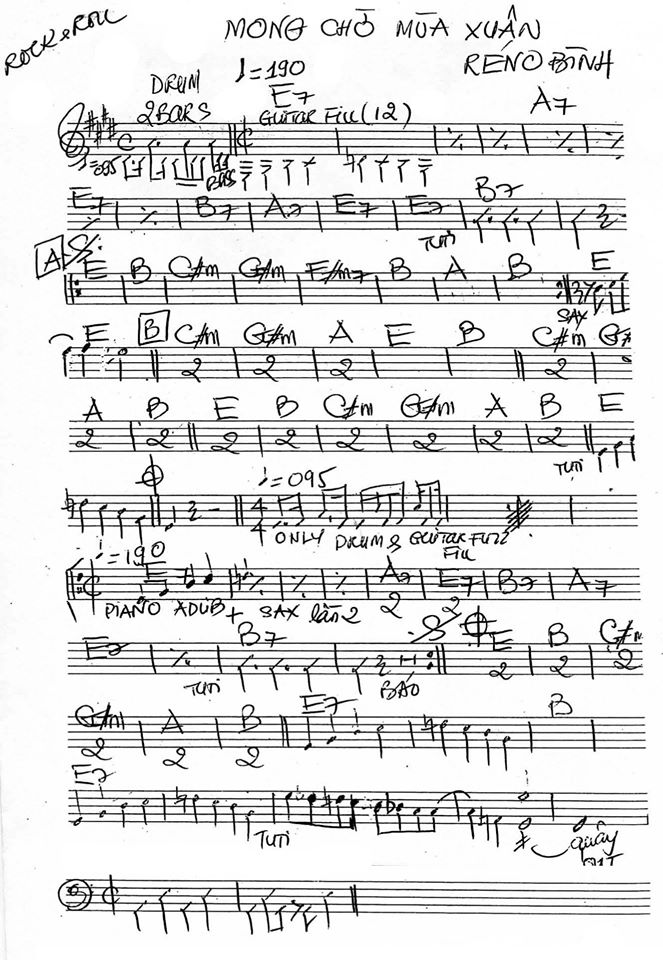 ROCK & ROLL
MONG CHỜ MÙA XUÂN
RÉNO BÌNH
DRUM 2 BARS
♩=190
E7
GUITAR FILL (12)
A7
♩=095
BASS
E7 B7 A7 E7 E7 B7
TUTI
A
E B C#m G#m F#m7 B A B E
SAX
E B C#m G#m A E B C#m G7
2 2 2 2
A B E B C#m G#m A B E
2 2 2 2 2 2 2 2
TUTI
♩=095
4/4
ONLY DRUM & GUITAR FULL FILL
♩=190
E A7 E7 B7 A7
2 2
PIANO ADLIB + SAX lần 2
E7 B7 E B C#m
2 2 2
TUTI
BÁO
G#m A B E7 B
2 2 2
E7
TUTI
quậy